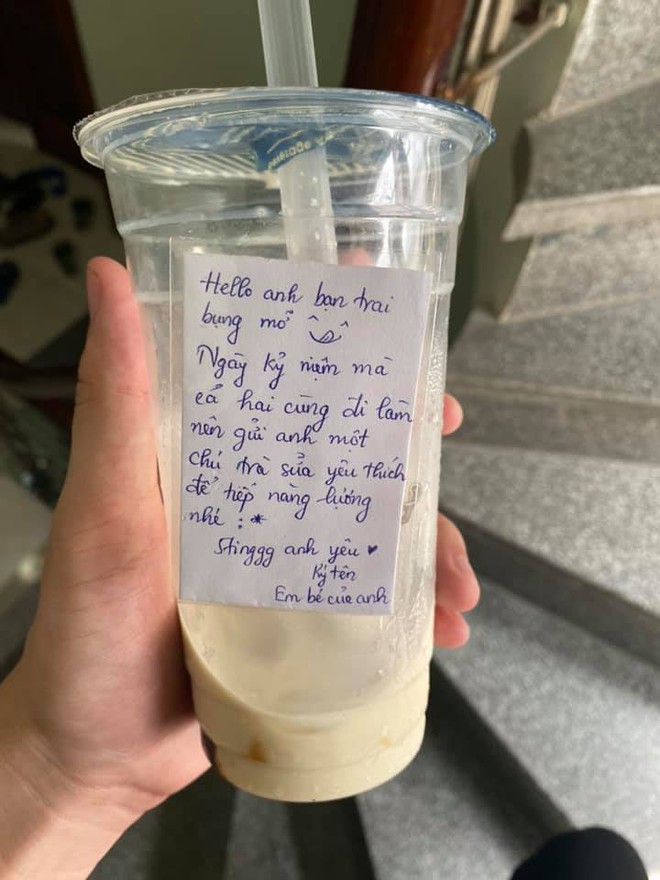 Hello anh bạn trai
bụng mỡ
Ngày kỷ niệm mà
cả hai cùng đi làm
nên gửi anh một
chú trà sữa yêu thích
để tiếp năng lượng
nhé :*
Stinggg anh yêu ♥
Ký tên
Em bé của anh